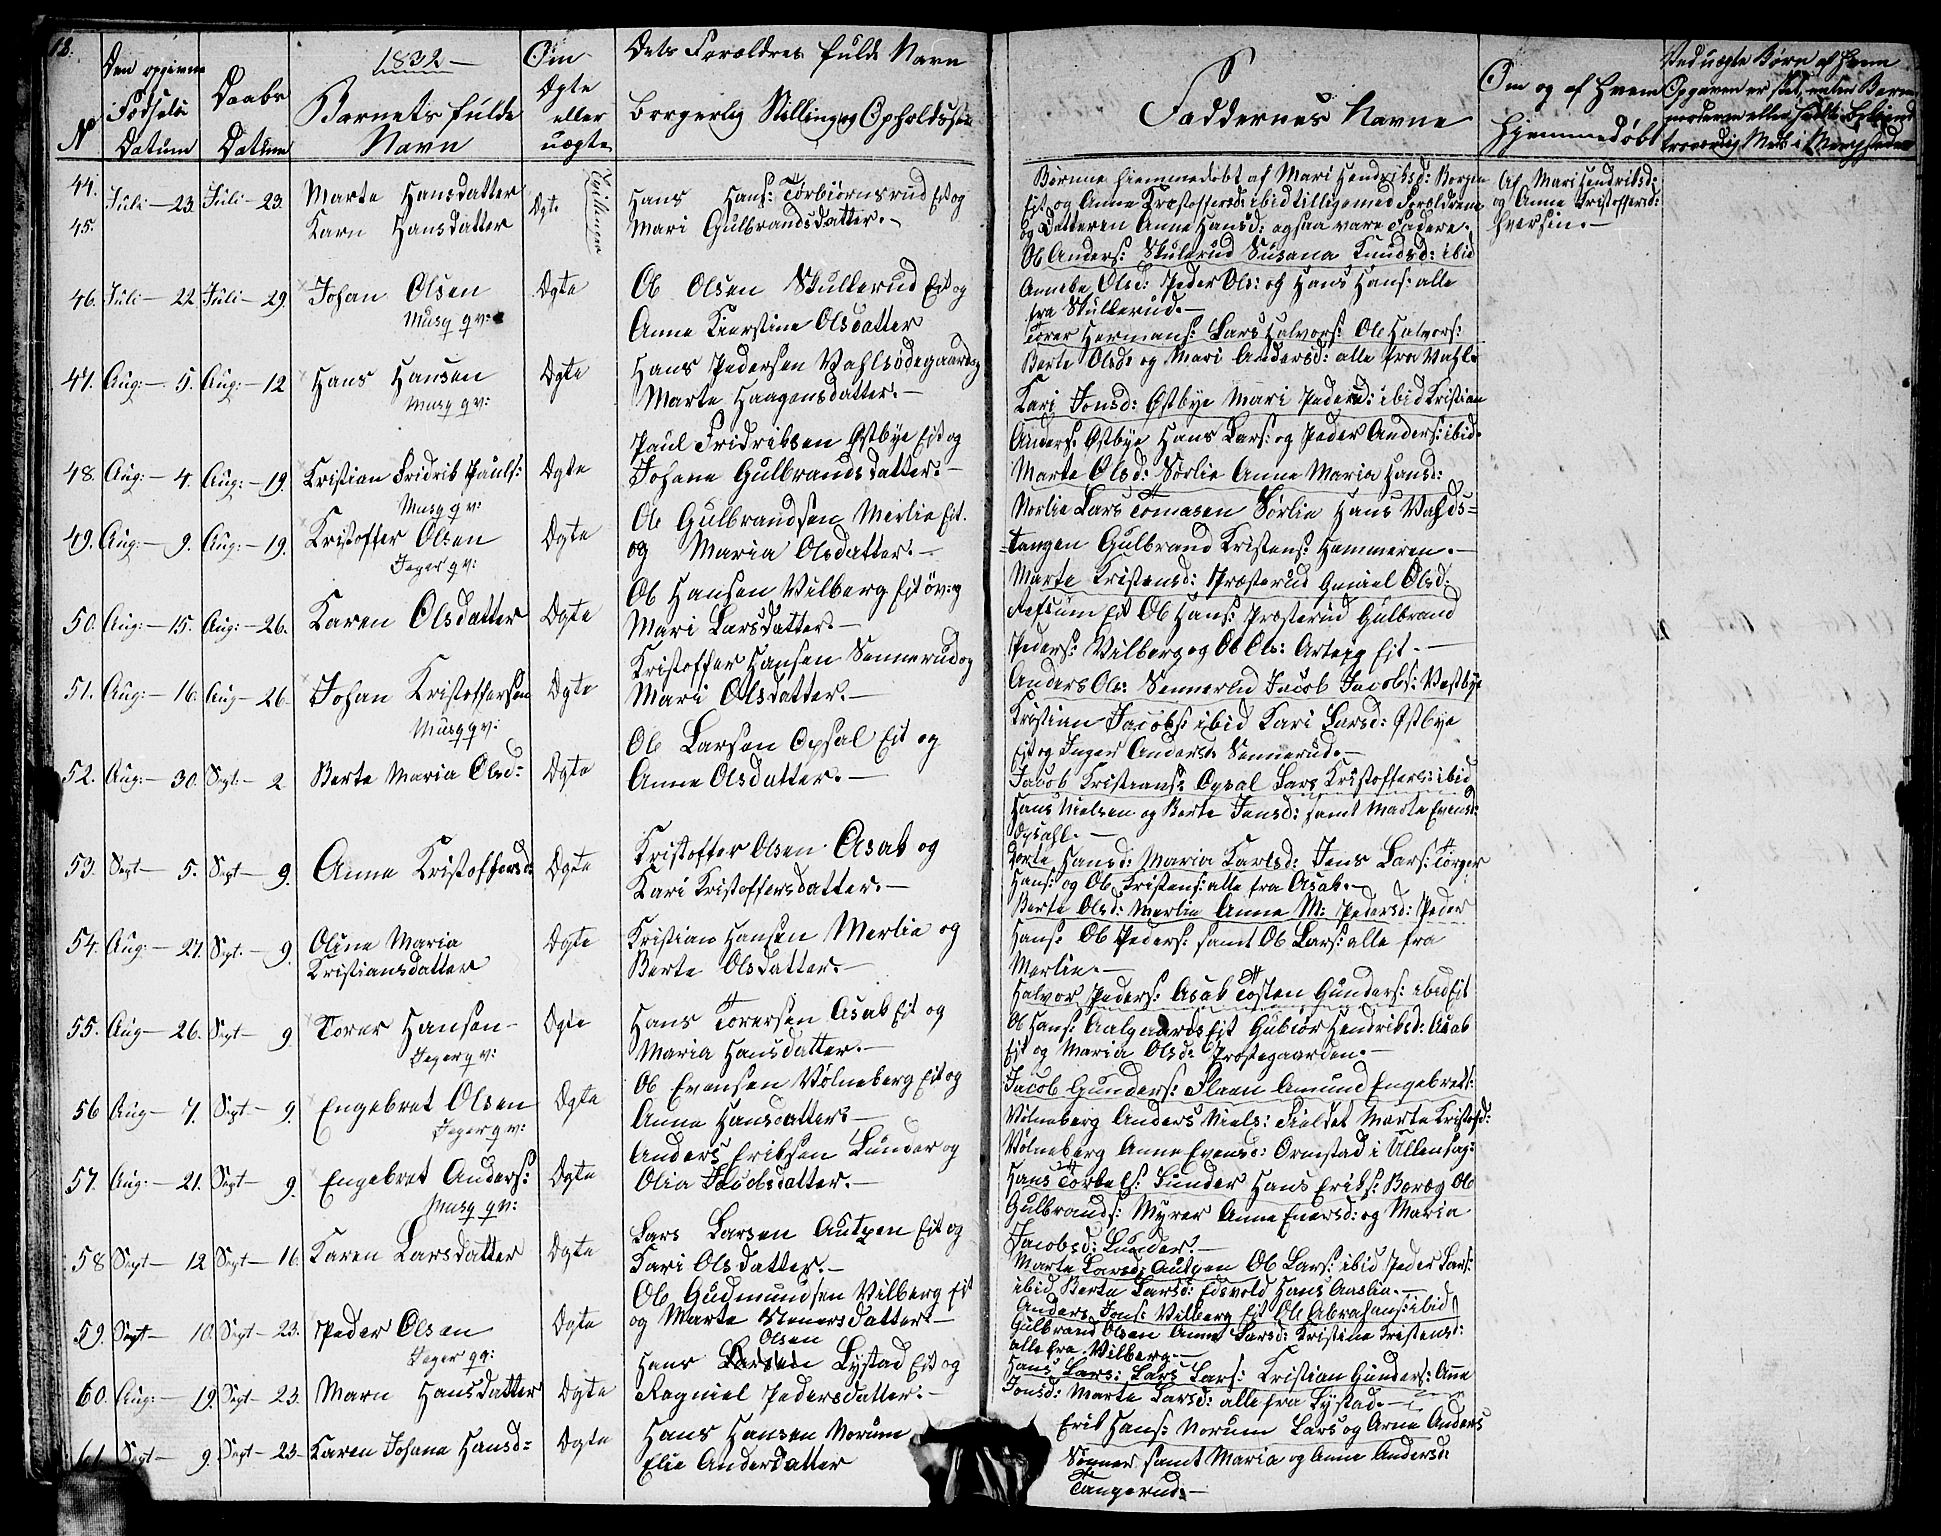 12.
Den opgivne Fødsels Datum
Daabs Datum
1832 —
Barnets fulde Navn
Om Ægte eller uægte
Dets Forældres fulde Navn
Borgerlig Stilling og Opholdssted
Faddernes Navne
Om og af Hvem Hjemmedøbt
Ved uægte Børn af Hvem
Opgaven er sked, enten Barne-
moderen eller
N
44. 45. Juli — 23. Juli — 23.
Marte Hansdatter
Karn Hansdatter
Ægte
Tvillinger
Hans Hans: Torbiørnsrud Eit og
Mari Gulbrandsdatter. —
Børnene Hiemmedøbt af Mari Hendriksd: Borgen
Eit og Anne Kristoffersd: ibid tilligemed Forældrene
og Datteren Anne Hansd: ogsaa vare Faddere.
Af Mari Hendriksd:
og Anne Kristoffersd:
hversin. —
46. Juli — 22 Juli — 29.
Johan Olsen
Musq g v:
Ægte
Ole Olsen Skullerud Eit og
Anne Kierstine Olsdatter
Ole Anders: Skullerud Susana Knudsd: ibid
Annebe Olsd: Peder Ols: og Hans Hans: alle
fra Skullerud. —
47. Aug: — 5. Aug: — 12
Hans Hansen
Musq g v:
Ægte
Hans Pedersen Vahlsødegaard og
Marte Haagensdatter. —
Torer Hermans: Lars Halvors: Ole Halvors:
Berte Olsd: og Mari Andersd: alle fra Vahl.
48. Aug: — 4. Aug: — 19.
Kristian Fridrik Pauls:
Musq g v:
Ægte
Paul Fridriksen Østbye Eit og
Johane Gulbrandsdatter. —
Kari Jonsd: Østbye Mari Pedersd: ibid Kristian
Anders: Østbye Hans Lars: og Peder Anders: ibid.
49. Aug: — 9. Aug: — 19.
Kristoffer Olsen
Jeger g v:
Ægte
Ole Gulbrandsen Merlie Eit.
og Maria Olsdatter. —
Marte Olsd: Sørlie Anne Maria Hansd:
Norlie Lars Tomasen Sørlie Hans Vahds=
=tangen Gulbrand Kristens: Hammeren. —
50. Aug: — 15. Aug: — 26.
Karen Olsdatter
Ægte
Ole Hansen Vilberg Eit øv: og
Mari Larsdatter. —
Marte Kristensd: Præsterud Olsd:
Refsum Eit Ole Hans: Præsterud Gulbrand
Peders: Vilberg og Ole Ols: Arteig Eit. —
51. Aug: — 16. Aug — 26.
Johan Kristoffersen
Musq g v:
Ægte
Kristoffer Hansen Sennerud og
Mari Olsdatter. —
Anders Ols: Sennerud Jacob Jacobs: Vestbye
Kristian Jacobs: ibid Kari Larsd: Østbye
Eit og Inger Andersd: Sennerud. —
52. Aug: — 30. Sept: — 2
Berte Maria Olsd:
Ægte
Ole Larsen Opsal Eit og
Anne Olsdatter. —
Jacob Kristians: Opsal Lars Kristoffers: ibid
Hans Nielsen og Berte Jensd: samt Marte Evensd:
Opsahl. —
53. Sept — 5. Sept — 9.
Anne Kristoffersd:
Ægte
Kristoffer Olsen Asak og
Kari Kristoffersdatter. —
Dorte Hansd: Maria Karlsd: Jens Lars: Torger
Hans: og Ole Kristens: alle fra Asak. —
54. Aug — 27. Sept. — 9.
Oline Maria
Kristiansdatter
Ægte
Kristian Hansen Merlie og
Berte Olsdatter. —
Berte Olsd: Merlie Anne M: Pedersd: Peder
Hans: Ole Peders: samt Ole Lars: alle fra
Merlie. —
55. Aug — 26. Sept — 9.
Torer Hansen
Jeger g v:
Ægte
Hans Torersen Asak Eit og
Maria Hansdatter. —
Halvor Peders: Asak Tosten Gunders: ibid Eit
Ole Hans: Aalgaards Eit Gubiør Hendriksd: Asak
Eit og Maria Olsd: Prestegaarden. —
56 Aug — 7. Sept — 9.
Engebret Olsen
Jeger g v:
Ægte
Ole Evensen Vølneberg Eit og
Anne Hansdatter —
Jacob Gunders: Flaen Amund Engebrets:
Vølneberg Anders Niels: Fieldet Marte Kristofd:
Vølneberg Anne Evensd: Ormstad i Ullensag:
57. Aug. — 21. Sept — 9.
Engebret Anders:
Musq g v:
Ægte
Anders Eriksen Lunder og
Olia Jacobsdatter. —
Hans Torkels: Lunder Hans Eriks: Ole
Gulbrands: Myrer Anne Enersd: og Maria
Jacobsd: Lunder. —
58 Sept — 12 Sept — 16.
Karen Larsdatter
Ægte
Lars Larsen Autzen Eit og
Kari Olsdatter. —
Marte Larsd: Autzen Ole Lars: ibid Peder Lars:
ibid Berte Larsd: Edsvold Hans Aaslia. —
59. Sept — 10. Sept — 23.
Peder Olsen
Jeger g v:
Ægte
Ole Gudmundsen Vilberg Eit
og Marte Stenersdatter. —
Anders Jons: Vilberg Eit Ole Abrahams: ibid
Gulbrand Olsen Anne Larsd: Kristine Kristensd:
alle fra Vilberg. —
60. Aug: — 19. Sept — 23.
Marn Hansdatter
Ægte
Olsen
Hans Larsen Lystad Eit og
Ragniel Pedersdatter. —
Hans Lars: Lars Lars: Kristian Gunders: Anne
Jonsd: Marte Larsd: alle fra Lystad. —
61 Sept — 9. Sept — 23
Karen Johane Hansd:
Ægte
Hans Hansen Norum
Elie Andersdatter
Erik Hans: Norum Lars og Arne Anders
Sønner samt Maria og Anne Andersd:
Tangerud. —